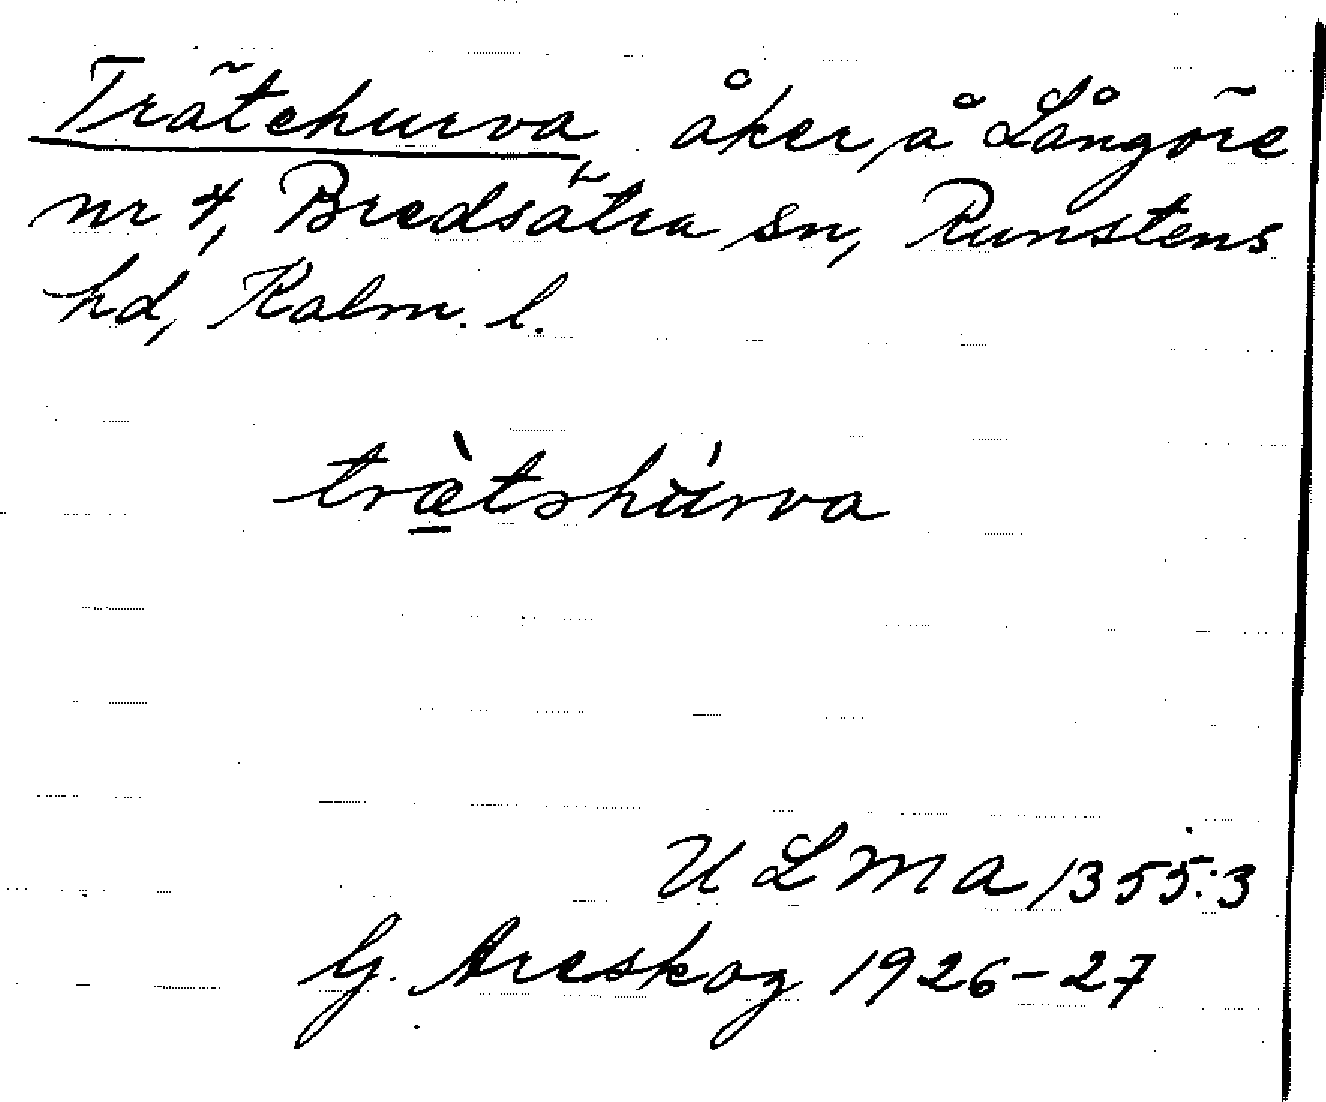 Trätehurva, åker å Långöre
nr 4, Bredsätra sn, Runstens
hd, Kalm. l.
træ̀təhúrva
ULMA 1355:3
G. Areskog 1926-27